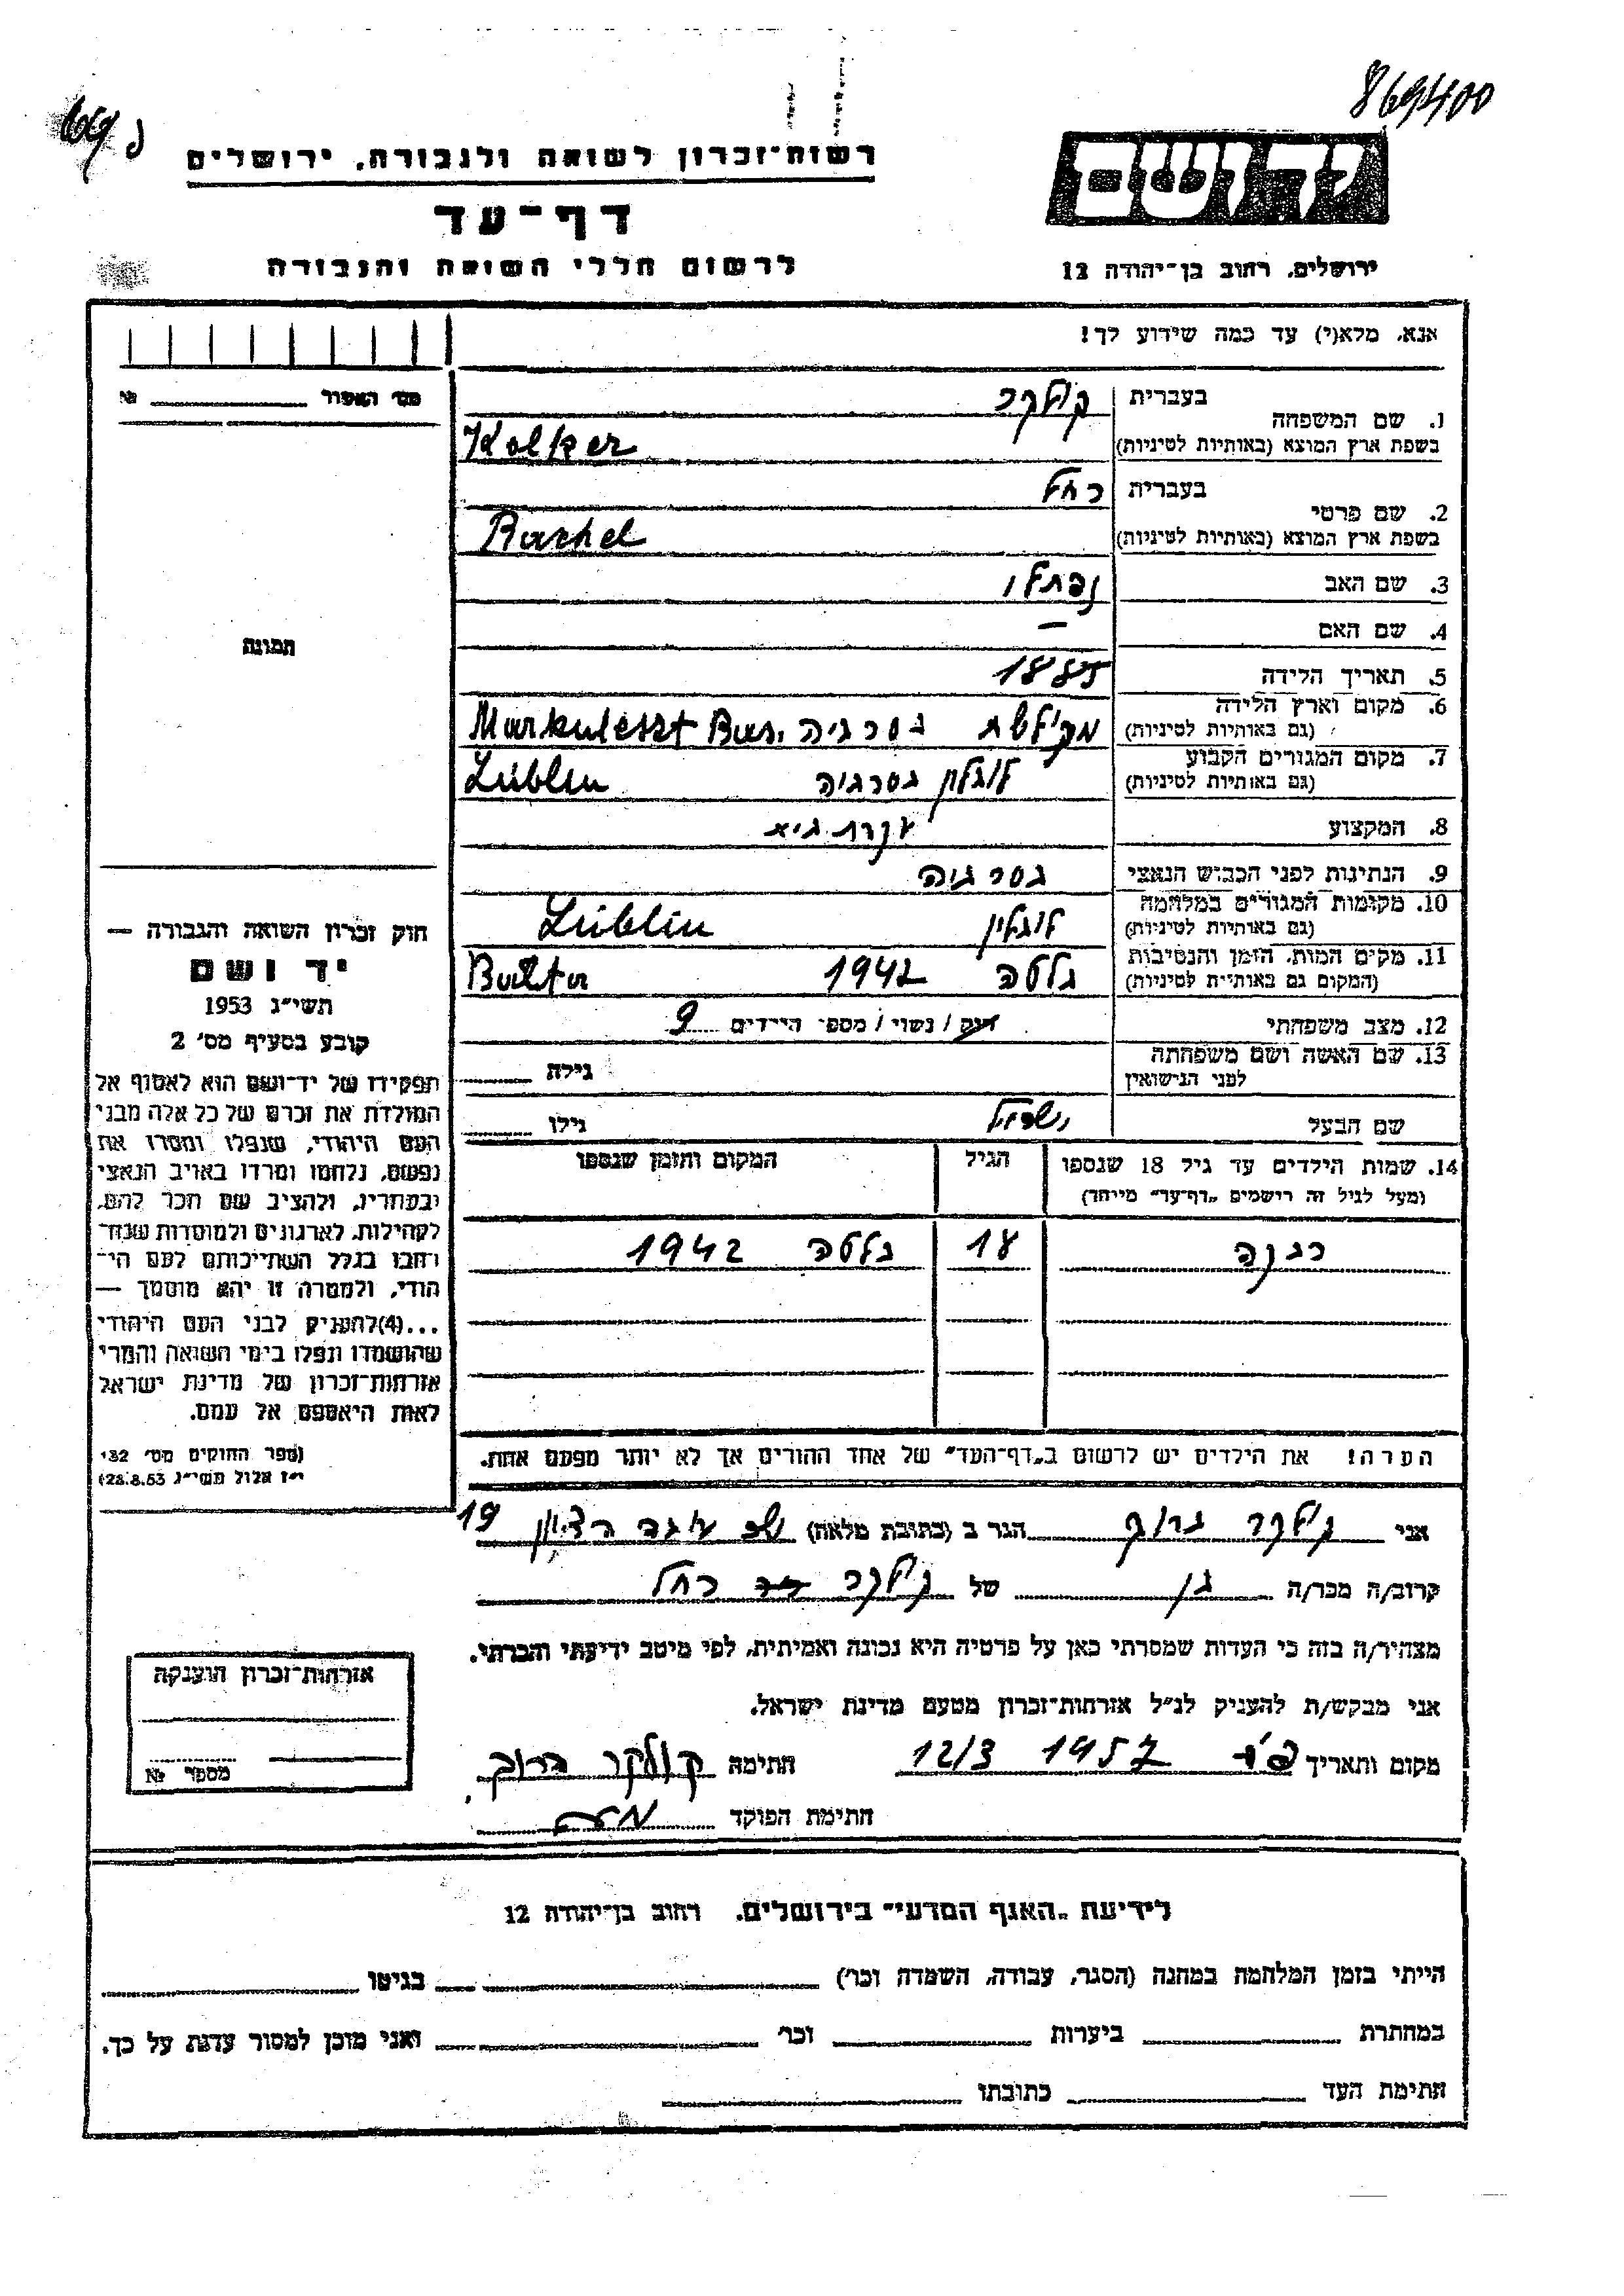 869400
רשות־זכרון לשואה ולגבורה, ירושלים
יד ושם
דף־עד
לרשום חללי השואה והגבורה
ירושלים, רחוב בן־יהודה 12
אנא, מלא(י) עד כמה שידוע לך!
מס' האפור № 
1. שם המשפחה בעברית קולקר
בשפת ארץ המוצא (באותיות לטיניות) Kolker
2. שם פרטי בעברית רחל
בשפת ארץ המוצא (באותיות לטיניות) Rachel
3. שם האב נפתלי
4. שם האם –
5. תאריך הלידה 1885
6. מקום וארץ הלידה (גם באותיות לטיניות) בסרביה Markuleszt Bas.
7. מקום המגורים הקבוע (גם באותיות לטיניות) לובלין בסרביה Lublin
8. המקצוע עקרת בית
9. הנתינות לפני הכבוש הנאצי בסרביה
10. מקומות המגורים במלחמה (גם באותיות לטיניות) לובלין Lublin
11. מקום המות, הזמן והנסיבות (המקום גם באותיות לטיניות) בלטה 1942 Balta
12. מצב משפחתי רווק / נשוי / מספר הילדים 9
13. שם האשה ושם משפחתה לפני הנישואין גילה
שם הבעל ישראל גילו
14. שמות הילדים עד גיל 18 שנספו (מעל לגיל זה רושמים „דף־עד" מיוחד) הגיל המקום והזמן שנספו
רבקה 18 בלטה 1942
הערה! את הילדים יש לרשום ב„דף־העד" של אחד ההורים אך לא יותר מפעם אחת.
תמונה
חוק זכרון השואה והגבורה —
יד ושם
תשי"ג 1953
קובע בסעיף מס' 2
תפקידו של יד־ושם הוא לאסוף אל
המולדת את זכרם של כל אלה מבני
העם היהודי, שנפלו ומסרו את
נפשם, נלחמו ומרדו באויב הנאצי
ובעוזריו, ולהציב שם וזכר להם,
לקהילות, לארגונים ולמוסדות שנח־
רבו בגלל השתייכותם לעם הי־
הודי, ולמטרה זו יהא מוסמך —
...(4)להעניק לבני העם היהודי
שהושמדו ונפלו בימי השואה והמרי
אזרחות־זכרון של מדינת ישראל
לאות היאספם אל עמם.
(ספר החוקים מס' 132
י"ז אלול תשי"ג 28.8.53)
אני קולקר ברוך הגר ב (כתובת מלאה) 19
קרוב/ה מכר/ה בן של קולקר רחל
מצהיר/ה בזה כי העדות שמסרתי כאן על פרטיה היא נכונה ואמיתית, לפי מיטב ידיעתי והכרתי.
אני מבקש/ת להעניק לנ"ל אזרחות־זכרון מטעם מדינת ישראל.
מקום ותאריך 12/3 1957 חתימה קולקר ברוך
חתימת הפוקד
אזרחות־זכרון הוענקה
מספר №
לידיעת „האגף המדעי" בירושלים, רחוב בן־יהודה 12
הייתי בזמן המלחמה במחנה (הסגר, עבודה, השמדה וכו') בגיטו
במחתרת ביערות וכו' ואני מוכן למסור עדות על כך.
חתימת העד כתובתו